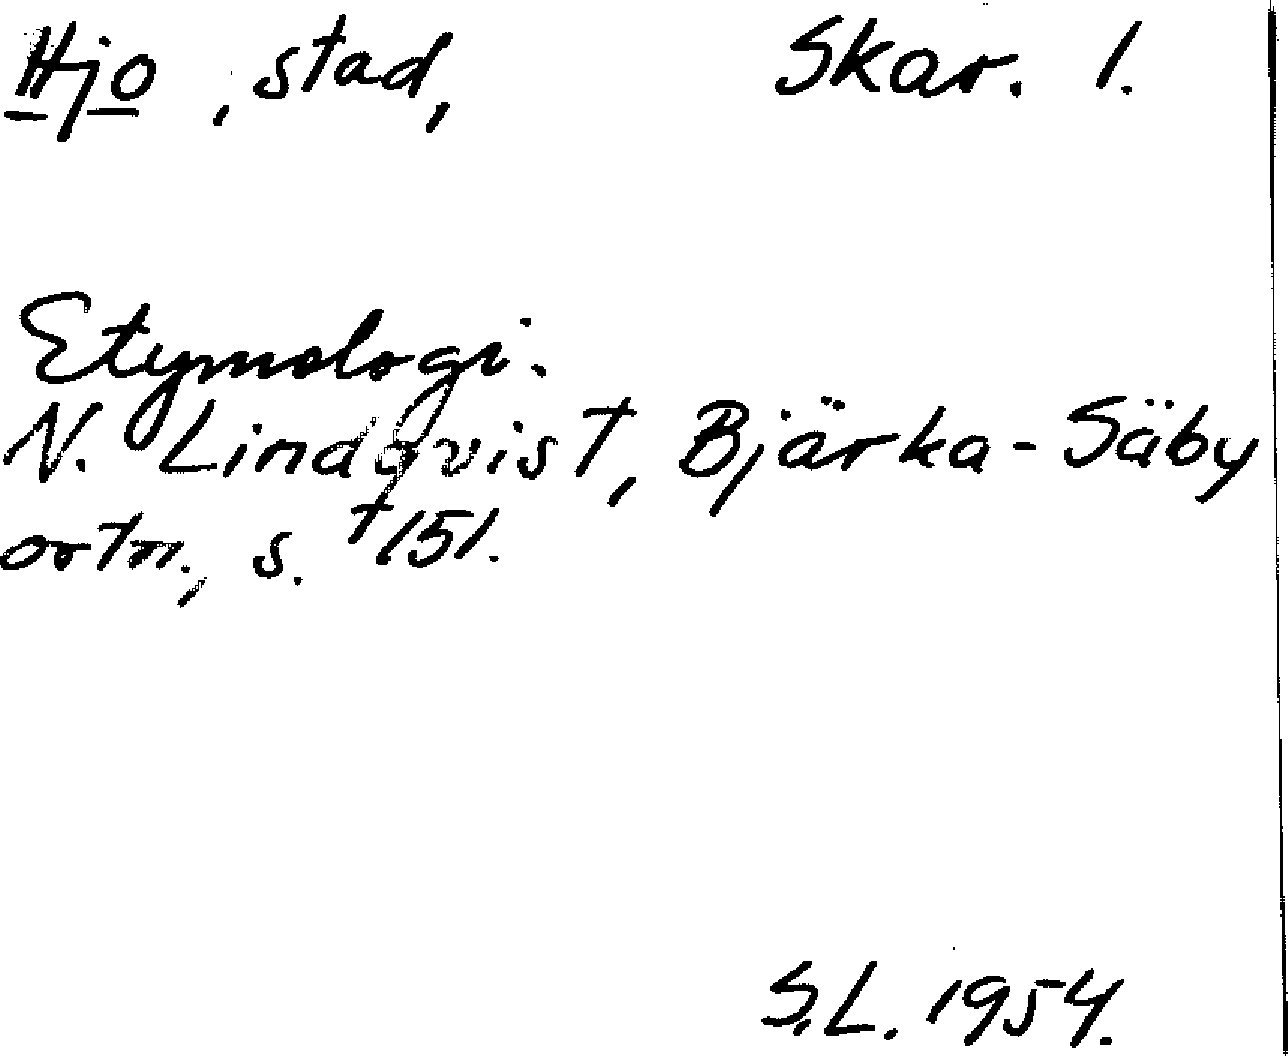 Hjo, stad, Skar. l.
Etymologi.
N. Lindqvist, Bjärka-Säby
ortn., s. 151.
S.L. 1954.